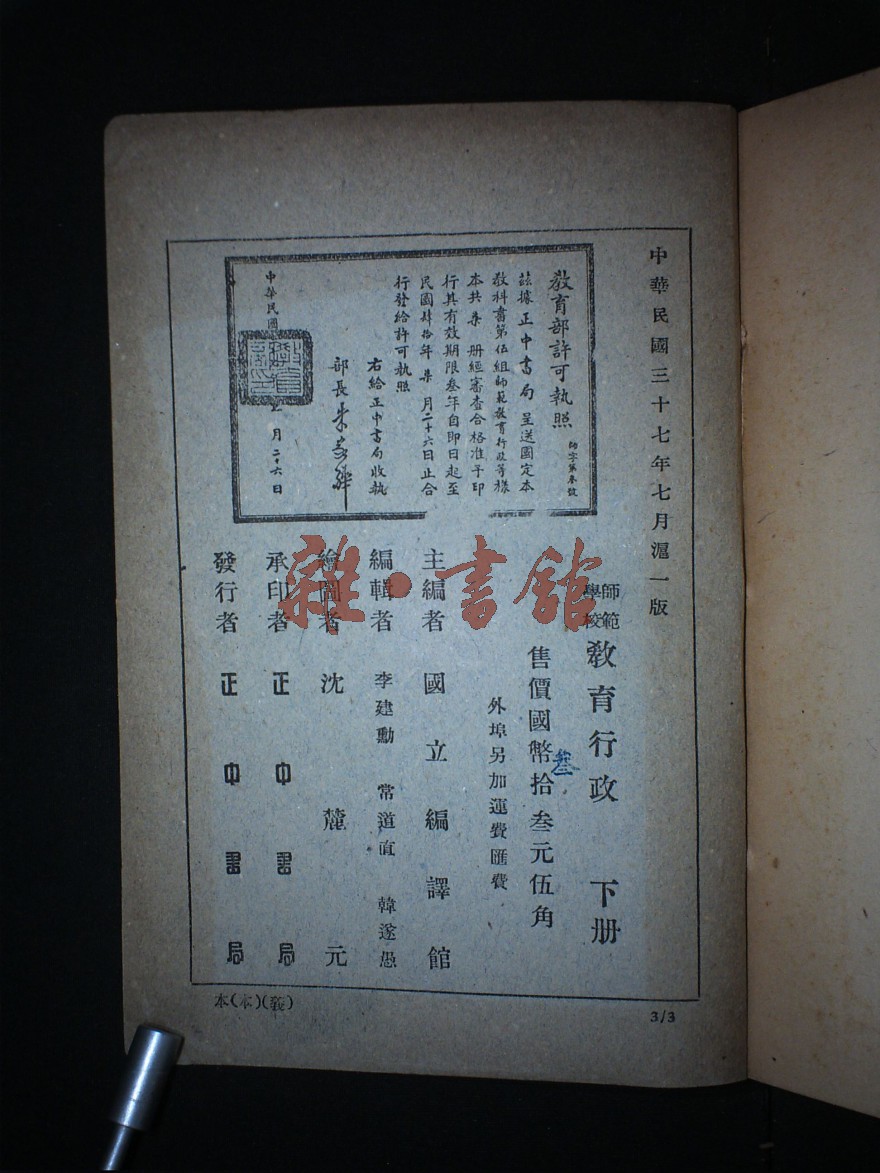 中華民國三十七年七月滬一版
教育部許可執照
師字第叁號
茲據正中書局呈送國定本
教科書第伍組師範教育行政等樣
本共柒册經審查合格准予印
行其有效期限叁年自即日起至
民國肆拾年柒月二十六日止合
行發給許可執照
右給正中書局收執
部長朱家驊
中華民國
月二十六日
師範學校教育行政 下册
售價國幣拾叁元伍角
叁
外埠另加運費匯費
主編者 國立編譯館
編輯者 李建勳 常道直 韓遂愚
繪圖者 沈麓元
承印者 正中書局
發行者 正中書局
本(本)(義)
3/3
雜·書館